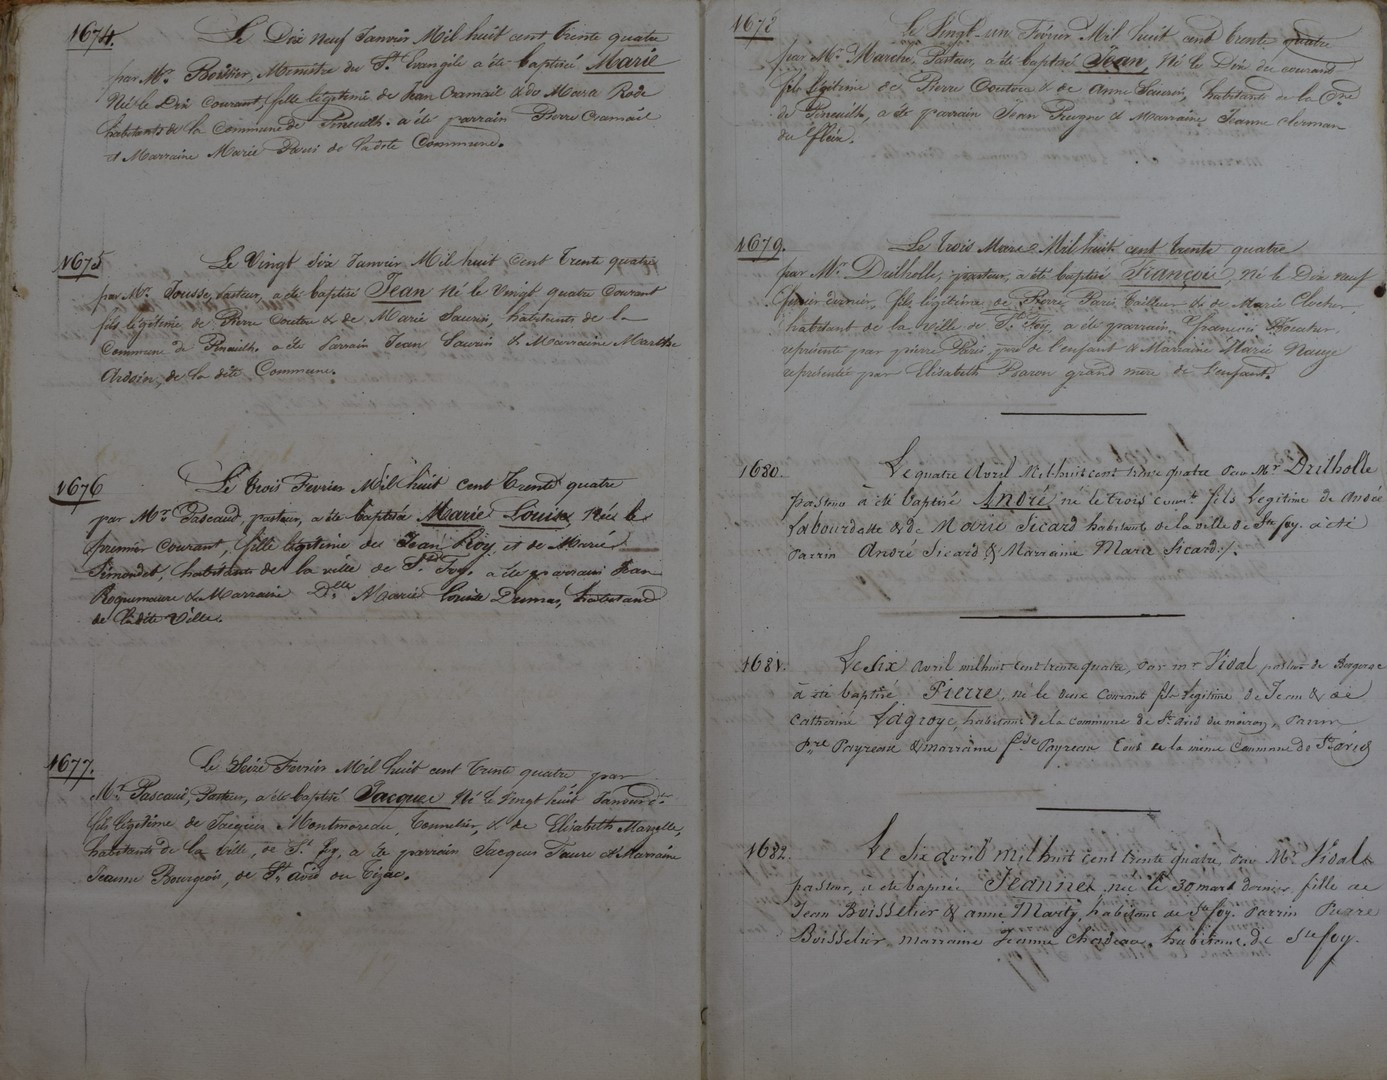 1674. Le Dix Neuf Janvier Mil huit cent trente quatre
par Mr. Ministre du St. Evangile a été baptisé Marie
Né le Dix Courant, fille légitime de Jean Cramail & de Marie
habitants de la Commune de Pineuilh. a été parrain Pierre Cramail
et Marraine Marie de la dite Commune.
1675 Le Vingt Six Janvier Mil huit Cent Trente quatre
par Mr. Jousse, Pasteur, a été baptisé Jean Né le Vingt quatre Courant
fils légitime de Pierre Coutou & de Marie Saurin, habitants de la
Commune de Pineuilh. a été Parrain Jean Saurin & Marraine Marthe
Ardoin, de la dite Commune.
1676 Le trois Fevrier Mil huit Cent Trente quatre
par Mr. Pascaud, pasteur, a été baptisée Marie Louise Née le
premier Courant, fille légitime de Jean Roy et de Marie
Simondet, habitants de la ville de Ste. Foy, a été parrain Jean
Roquemaure & Marraine Delle Marie Louise Dumas, habitand
de la dite Ville.
1677. Le Seize Fevrier Mil huit cent trente quatre par
Mr. Pascaud, Pasteur, a été baptisé Jacques Né le Vingt huit Janvier der
fils légitime de Jacques Montmoreau, Tonnelier & de Elisabeth
habitants de la Ville, de Ste. foy, a été parrain Jacques Faure & Marraine
Jeanne Bourgois, de St. avis du Tizac.
1678 Le Vingt-un Fevrier Mil huit cent trente quatre
par Mr. Marche, Pasteur, a été baptisé Jean, Né le Dix du courant
fils légitime de Pierre Coutou & de Anne Saurin, habitants de la Cne
de Pineuilh, a été parrain Jean & Marraine Jeanne
du fleix.
1679. Le trois Mars Mil huit cent trente quatre
par Mr Drilholle, pasteur, a été baptisé François, Né le Dix neuf
fevrier dernier, fils légitime de Pierre Paris Tailleur & de Marie Clocher,
habitant de la ville de Ste. Foy, a été parrain françois
représenté par pierre Paris, père de l'enfant & Marraine Marie Nauze
représentée par Elisabeth Baron grand mère de l'enfant.
1680. Le quatre Avril Mil huit cent trente quatre par Mr Drilholle
pasteur a été baptisé André né le trois courant fils légitime de André
Labourdatte & de Marie Sicard habitants de la ville de Ste foy. a été
Parrin André Sicard & Marraine Marie Sicard./.
1681. Le Six avril mil huit cent trente quatre, par mr Vidal pasteur de Bergerac
à été baptisé Pierre, né le deux courant fils légitime de Jean & de
Catherine Lagroye, habitans de la commune de St. avid du moiron, Parrin
Prre Payreau & marraine Payreau tous de la même Commune de St avid
1682. Le Six avril mil huit cent trente quatre, par Mr Vidal
pasteur, a été baptisée Jeanne, née le 30 mars dernier fille de
Jean Boisselier & anne Marty, habitans de Ste foy. Parrin Pierre
Boisselier marraine Jeanne habitans de Ste foy.